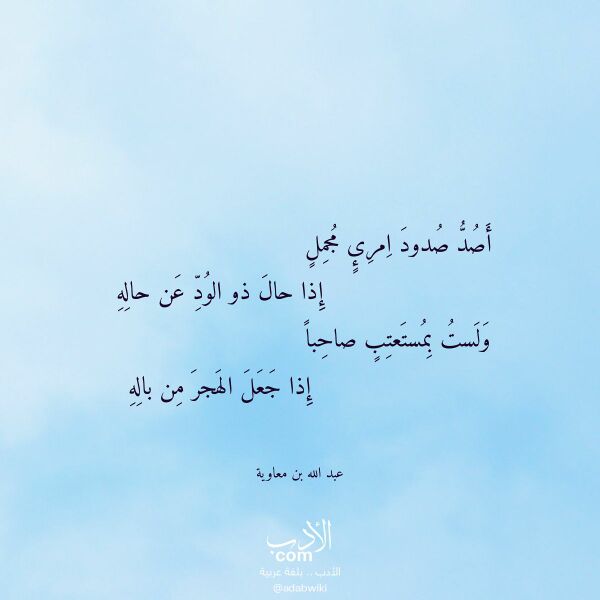 أَصُدُّ صُدودَ اِمرِئٍ مُجمِلٍ
إِذا حالَ ذو الوُدِّ عَن حالِهِ
وَلَستُ بِمُستَعتِبٍ صاحِباً
إِذا جَعَلَ الهَجرَ مِن بالِهِ
عبد الله بن معاوية
الأدب
com
الأدب .. بلغة عربية
@adabwiki